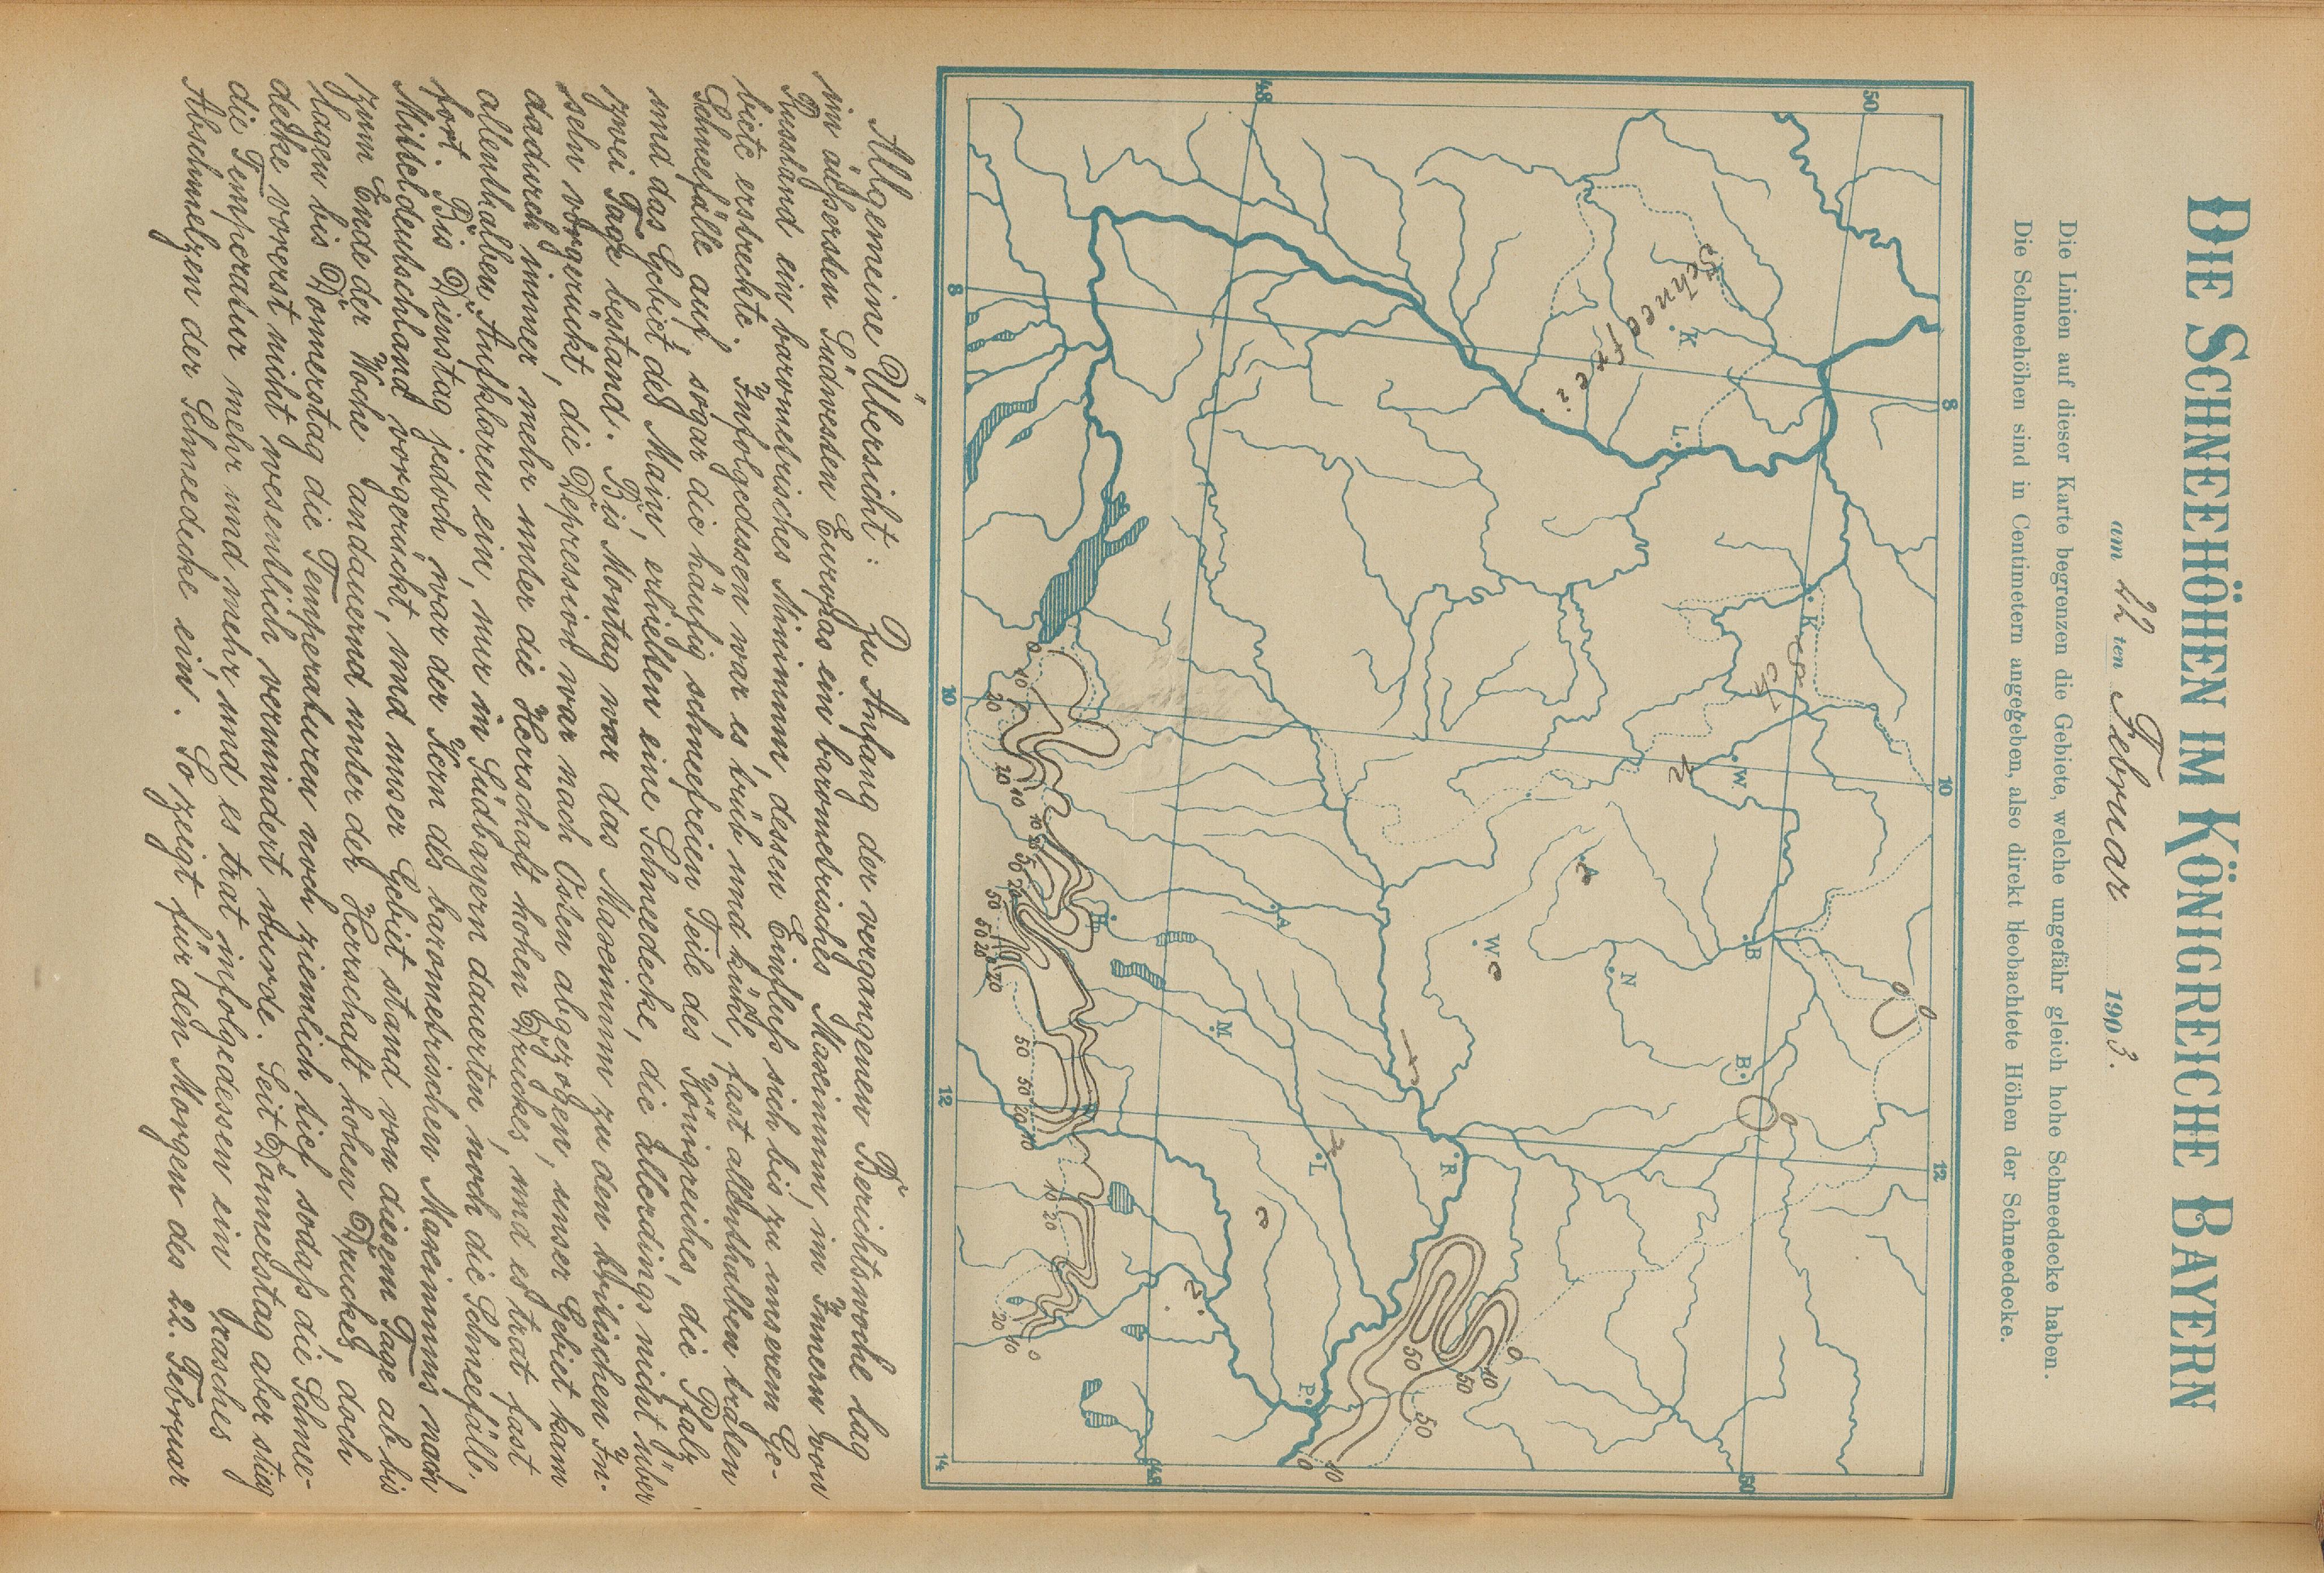 DIE SCHNEEHÖHEN IM KÖNIGREICHE BAYERN
am 22 ten Februar 1903.
Die Linien auf dieser Karte begrenzen die Gebiete, welche ungefähr gleich hohe Schneedecke haben.
Die Schneehöhen sind in Centimetern angegeben, also direkt beobachtete Höhen der Schneedecke.
8
10
12
50
50
K.
K.
W.
B.
B.
L.
A.
N.
W.
R.
L.
A.
M.
P.
Schneefrei
48
48
8
10
12
14
0
0
0
0
10
50
50
50
0
10
0
10
20
20
10
50
50
50
20
10
10
20
20
10
0
Allgemeine Übersicht: Zu Anfang der vergangenen Berichtswoche lag
im äußersten Südwesten Europas ein barometrisches Maximum, im Innern von
Russland ein barometrisches Minimum, dessen Einfluß sich bis zu unserem Ge-
biete erstreckte. Infolgedessen war es trüb und kühl, fast allenthalben traten
Schneefälle auf, sogar die häufig schneefreien Teile des Königreiches, die Pfalz
und das Gebiet des Main, erhielten eine Schneedecke, die allerdings nicht über
zwei Tage bestand. Bis Montag war das Maximum zu den britischen In-
seln vorgerückt, die Depression war nach Osten abgezogen, unser Gebiet kam
dadurch immer mehr unter die Herrschaft hohen Druckes, und es trat fast
allenthalben Aufklaren ein, nur in Südbayern dauerten noch die Schneefälle
fort. Bis Dienstag jedoch war der Kern des barometrischen Maximums nach
Mitteldeutschland vorgerückt, und unser Gebiet stand von diesem Tage ab bis
zum Ende der Woche andauernd unter der Herrschaft hohen Druckes, doch
lagen bis Donnerstag die Temperaturen noch ziemlich tief, sodaß die Schnee-
decke vorerst nicht wesentlich vermindert wurde. Seit Donnerstag aber stieg
die Temperatur mehr und mehr, und es trat infolgedessen ein rasches
Abschmelzen der Schneedecke ein. So zeigt für den Morgen des 22. Februar